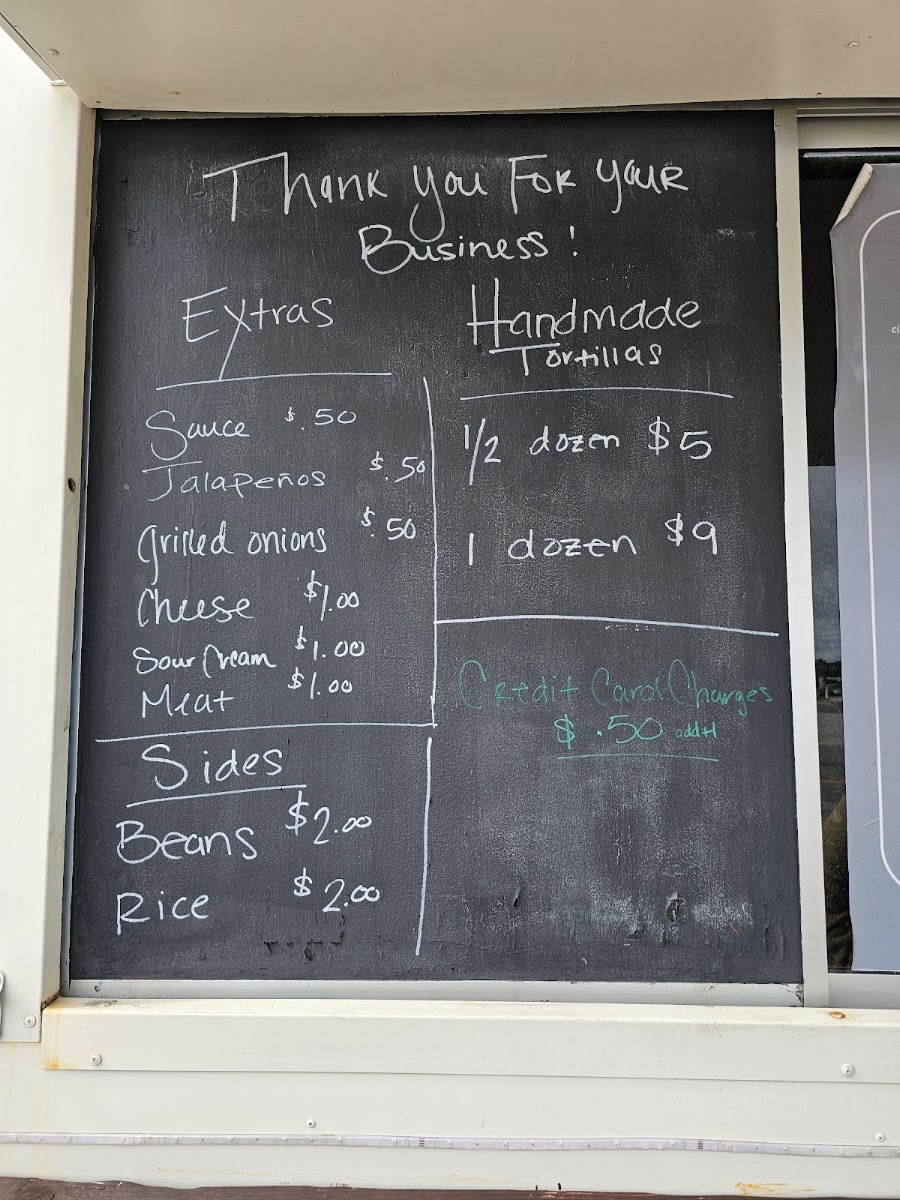 Thank you For your
Business!
Extras
Sauce $.50
Jalapeños $.50
Grilled onions $.50
Cheese $1.00
Sour Cream $1.00
Meat $1.00
Sides
Beans $2.00
Rice $2.00
Handmade
Tortillas
1/2 dozen $5
1 dozen $9
Credit Card Charges
$ .50 addtl